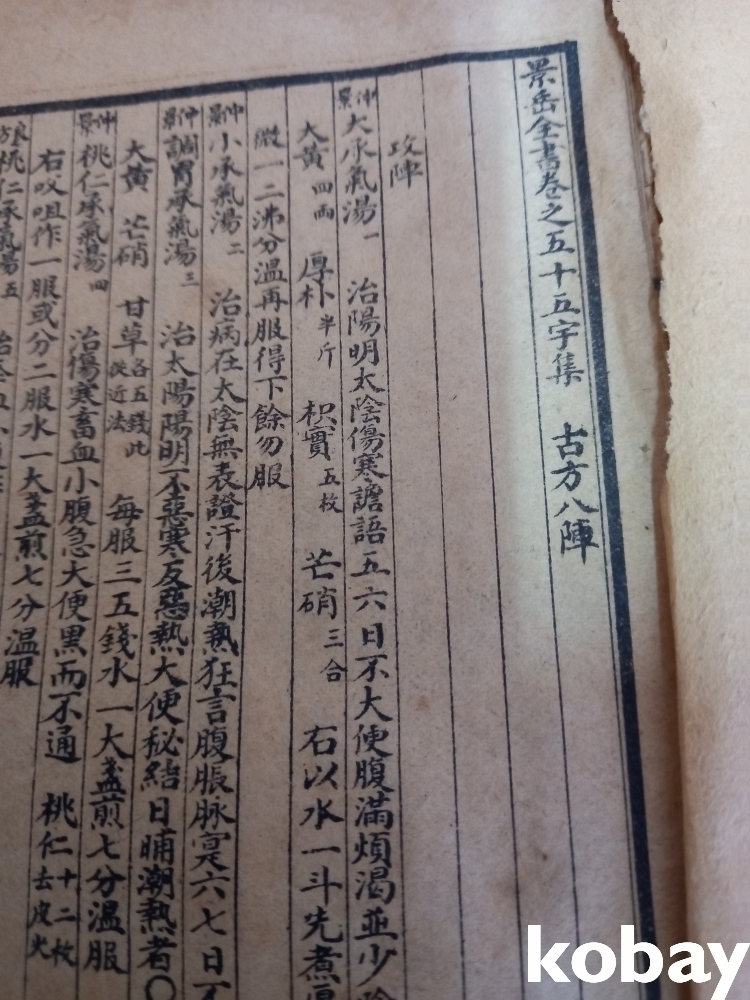 景岳全書卷之五十五字集 古方八陣
攻陣
仲景大承氣湯一 治陽明太陰傷寒譫語五六日不大便腹滿煩渴並少
大黃四両 厚朴半斤 枳實五枚 芒硝三合 右以水一斗先煮
微一二沸分溫再服得下餘勿服
仲景小承氣湯二 治病在太陰無表證汗後潮熱狂言腹脹脉寔六七日不
仲景調胃承氣湯三 治太陽陽明不惡寒反惡熱大便秘結日晡潮熱者○
大黃 芒硝 甘草各五錢此從近法 每服三五錢水一大盞煎七分溫服
仲景桃仁承氣湯四 治傷寒畜血小腹急大便黑而不通 桃仁十二枚去皮尖
右㕮咀作一服或分二服水一大盞煎七分溫服
桃仁承氣湯五
kobay